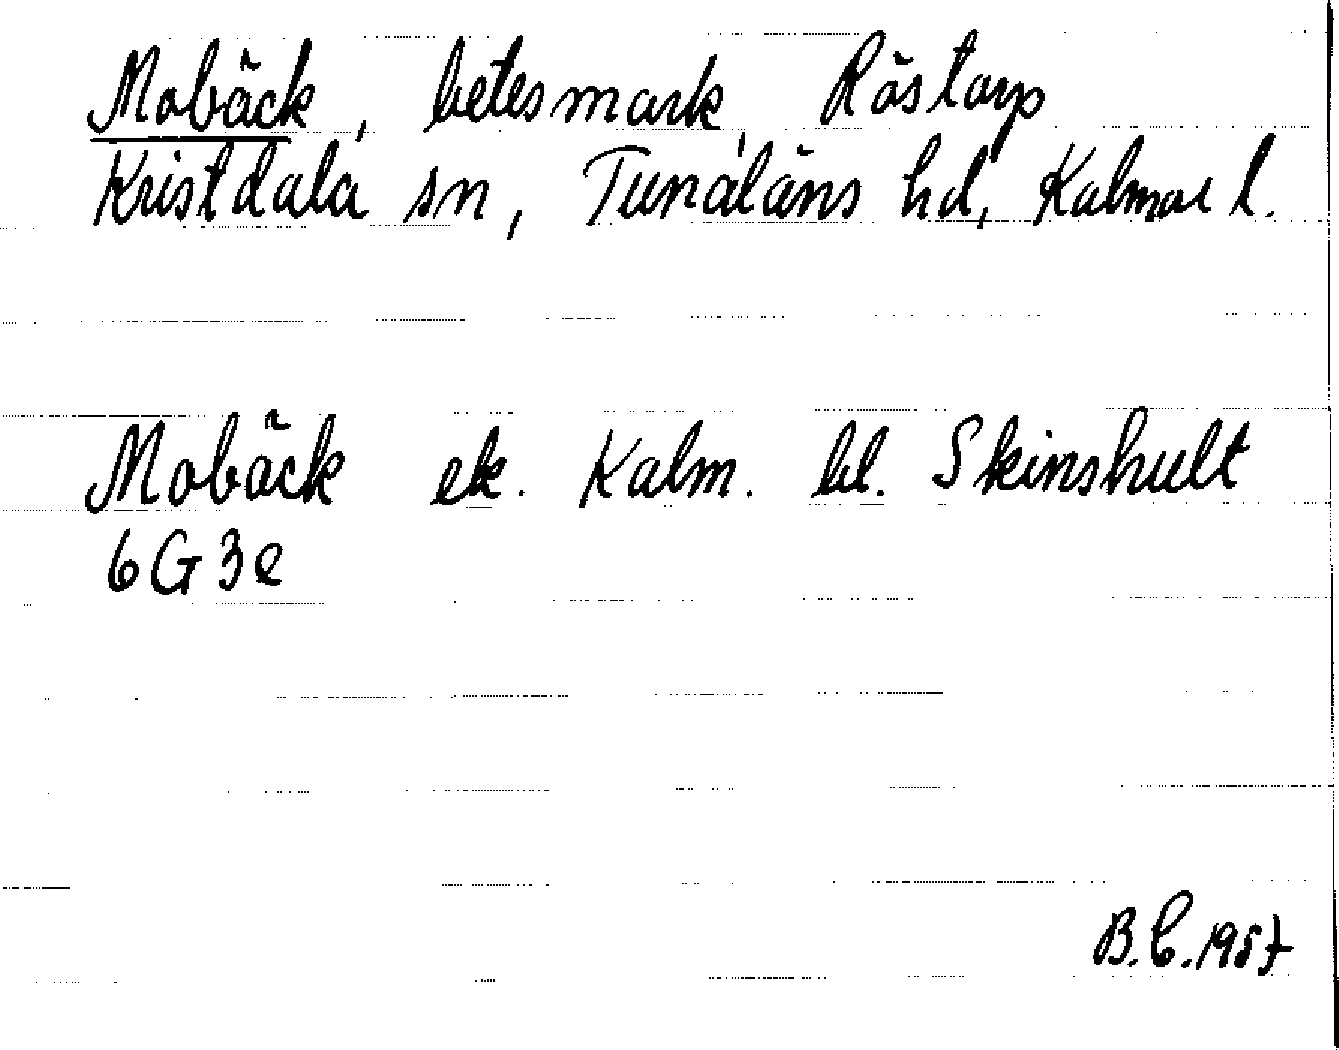 Mobäck, betesmark, Röstorp
Kristdala sn, Tunaläns hd, Kalmar l.
Mobäck ek. Kalm. bl. Skinshult
6G3e
B.C.1957